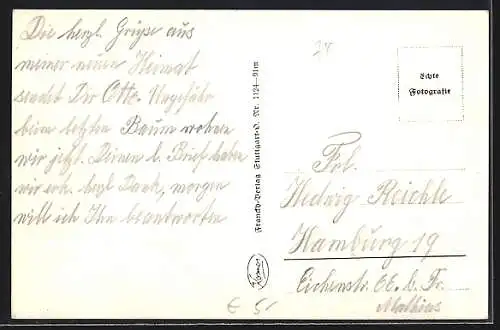 Die herzl. Grüße aus
meiner neuen Heimat
sendet Dir Otto. Ungefähr
beim letzten Baum wohnen
wir jetzt. Deinen l. Brief haben
wir erh. herzl. Dank, morgen
will ich Ihn beantworten
Franckh-Verlag Stuttgart-O. Nr. 1124-91m
24
Echte
Fotografie
Frl.
Hedwig Reichle
Hamburg 19
Eichenstr. 66. b. Fr.
Mathies
€ 5,-